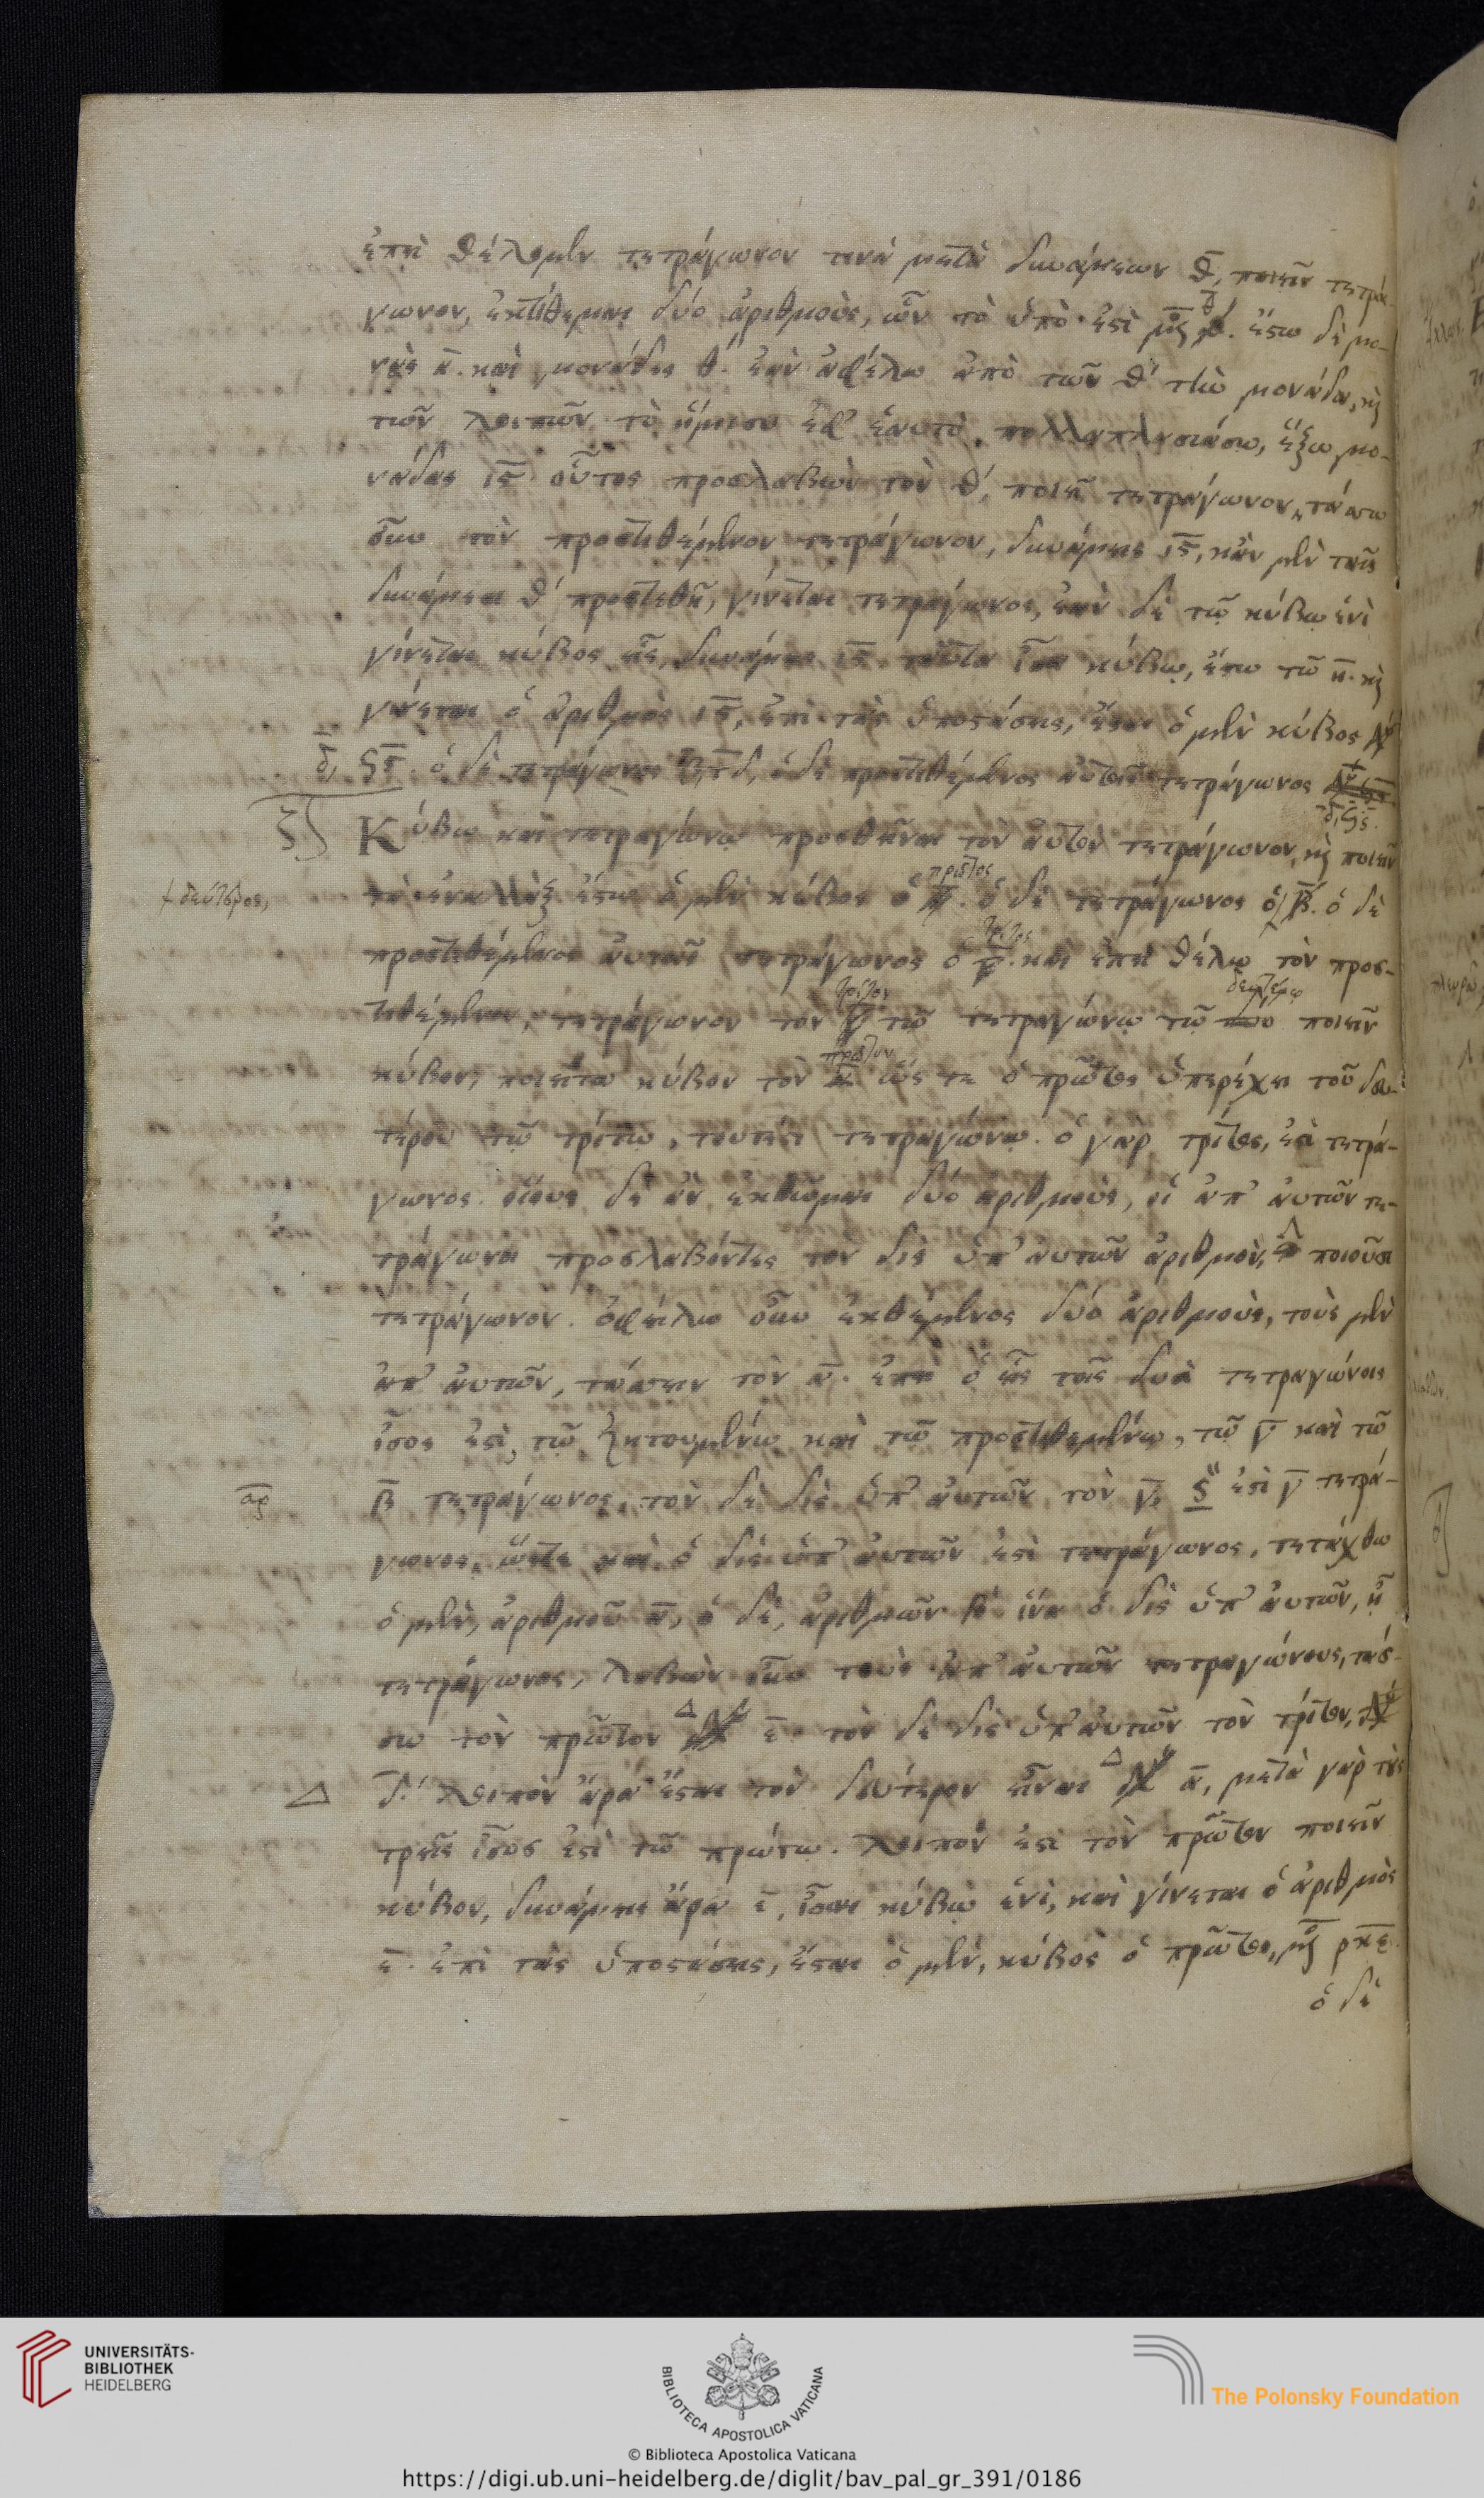 ἐπεὶ θέλομεν τετράγωνόν τινα μετὰ δυνάμεων θ, ποιεῖν τετρά
γωνον, ἐκτίθεμαι δύο ἀριθμοὺς, ὧν τὸ ὑπὸ ἐστὶ μο θ. ἔστω δὲ μο-
νὰς α. καὶ μονάδες θ. ἐὰν ἀφέλω ἀπὸ τῶν θ τὴν μονάδα, καὶ
τῶν λοιπῶν τὸ ἥμισυ ἐφ' ἑαυτὸ πολλαπλασιάσω, ἕξω μο-
νάδας ις οὗτος προσλαβὼν τὸν θ, ποιεῖ τετράγωνον, τάσσω
οὖν τὸν προστιθέμενον τετράγωνον, δυνάμεις ις, κἂν μὲν ταῖς
δυνάμεσι θ προστεθῇ, γίνεται τετράγωνος, ἐὰν δὲ τῷ κύβῳ ἑνὶ
γίνεται κύβος εἷς, δυνάμεις ις. ταῦτα ἴσα κύβῳ, ἔστω τῷ η. καὶ
γίνεται ὁ ἀριθμὸς ις, ἐπὶ τὰς ὑποστάσεις, ἔσται ὁ μὲν κύβος
δ, ϟς. ὁ δὲ τετράγωνος β, τδ, ὁ δὲ προστιθέμενος αὐτοῖς τετράγωνος
δ, ϟς.
ζ Κύβῳ καὶ τετραγώνῳ προσθεῖναι τὸν αὐτὸν τετράγωνον, καὶ ποιεῖν
πρῶτος
δεύτερος, τὰ ἐναλλὰξ ἔστω ὁ μὲν κύβος ὁ ὁ δὲ τετράγωνος ὁ β. ὁ δὲ
τρίτος
προστιθέμενος αὐτοῖς τετράγωνος ὁ γ. καὶ ἐπεὶ θέλω τὸν προσ-
τρίτον δευτέρῳ
τιθέμενον, τετράγωνον τὸν γ τῷ τετραγώνῳ τῷ ποιεῖν
πρῶτον
κύβον, ποιείτω κύβον τὸν ὥστε ὁ πρῶτος ὑπερέχει τοῦ δευ-
τέρου τῷ τρίτῳ, τουτέστι τετραγώνῳ. ὁ γὰρ τρίτος, ἐστὶ τετρά-
γωνος. οἵους δὲ ἂν ἐκθῶμαι δύο ἀριθμοὺς, οἱ ἀπ' αὐτῶν τε-
τράγωνοι προσλαβόντες τὸν δὶς ὑπ' αὐτῶν ἀριθμὸν, ποιοῦσι
τετράγωνον. ὀφείλω οὖν ἐκθέμενος δύο ἀριθμοὺς, τοὺς μὲν
ἀπ' αὐτῶν, τάσσειν τὸν α. ἐπεὶ ὁ εἷς τοῖς δυσὶ τετραγώνοις
ἴσος ἐστὶ, τῷ ζητουμένῳ καὶ τῷ προστιθεμένῳ, τῷ γ καὶ τῷ
β τετράγωνος, τὸν δὲ δὶς ὑπ' αὐτῶν τὸν γ. ἐστὶ γ τετρά-
γωνος, ὥστε καὶ ὁ δὶς ὑπ' αὐτῶν ἐστὶ τετράγωνος, τετάχθω
ὁ μὲν, ἀριθμοῦ α, ὁ δὲ, ἀριθμῶν β ἵνα ὁ δὶς ὑπ' αὐτῶν, ᾖ
τετράγωνος, λαβὼν οὖν τοὺς ἀπ' αὐτῶν τετραγώνους, τάσ-
σω τὸν πρῶτον Δ ε. τὸν δὲ δὶς ὑπ' αὐτῶν τὸν τρίτον,
Δ δ. λοιπὸν ἄρα ἔσται τὸν δεύτερον εἶναι Δ α, μετὰ γὰρ τῆς
τρεῖς ἴσος ἐστὶ τῷ πρώτῳ. λοιπὸν ἐστὶ τὸν πρῶτον ποιεῖν
κύβον, δυνάμεις ἄρα ε, ἴσαι κύβῳ ἑνὶ, καὶ γίνεται ὁ ἀριθμὸς
ε. ἐπὶ τὰς ὑποστάσεις, ἔσται ὁ μὲν, κύβος ὁ πρῶτος, μο ρκε.
ὁ δὲ
UNIVERSITÄTS-
BIBLIOTHEK
HEIDELBERG
BIBLIOTECA APOSTOLICA VATICANA
The Polonsky Foundation
© Biblioteca Apostolica Vaticana
https://digi.ub.uni-heidelberg.de/diglit/bav_pal_gr_391/0186